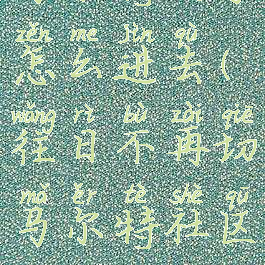 zěn me jìn qù
怎么进去(
wǎng rì bù zài qiē
往日不再切
mǎ ěr tè shè qū
马尔特社区